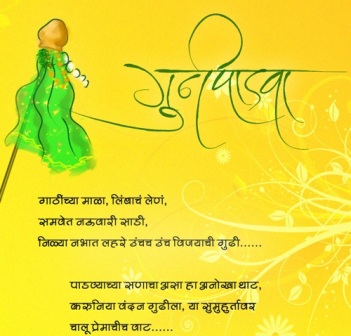 गुढीपाडवा
गाठींच्या माळा, लिंबाचं लेणं,
समवेत नऊवारी साडी,
निळ्या नभात लहरे उंचच उंच विजयाची गुढी......
पाडव्याच्या सणाचा असा हा अनोखा थाट,
करुनिया वंदन गुढीला, या सुमुहुर्तावर
चालू प्रेमाचीच वाट......